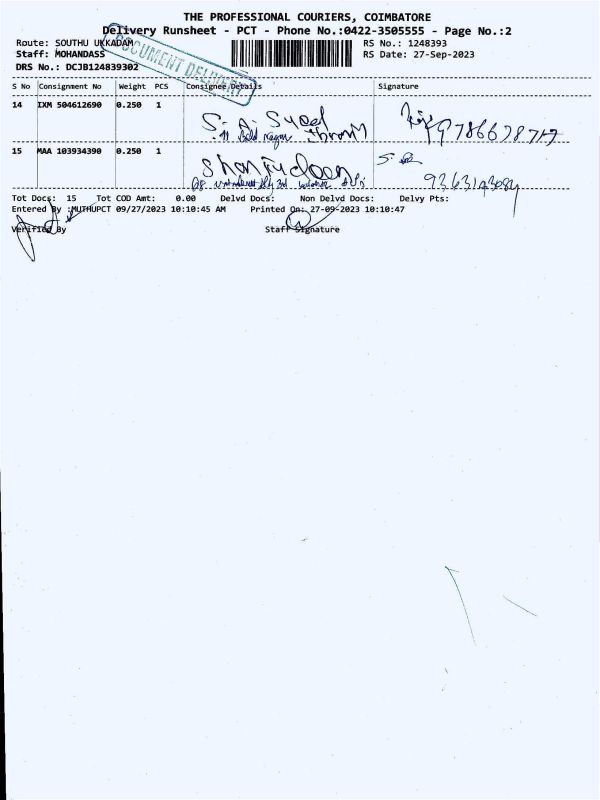 THE PROFESSIONAL COURIERS, COIMBATORE
Delivery Runsheet - PCT - Phone No.:0422-3505555 - Page No.:2
Route: SOUTHU UKKADAM
RS No.: 1248393
Staff: MOHANDASS
RS Date: 27-Sep-2023
DRS No.: DCJB124839302
DOCUMENT DELIVERY
S No Consignment No Weight PCS Consignee Details Signature
14 IXM 504612690 0.250 1
S. A. Syed
Ibrahim
15 MAA 103934390 0.250 1
Sharfudeen
Tot Docs: 15 Tot COD Amt: 0.00 Delvd Docs: Non Delvd Docs: Delvy Pts:
Entered By :MUTHUPCT 09/27/2023 10:10:45 AM Printed On: 27-09-2023 10:10:47
Verified By Staff Signature